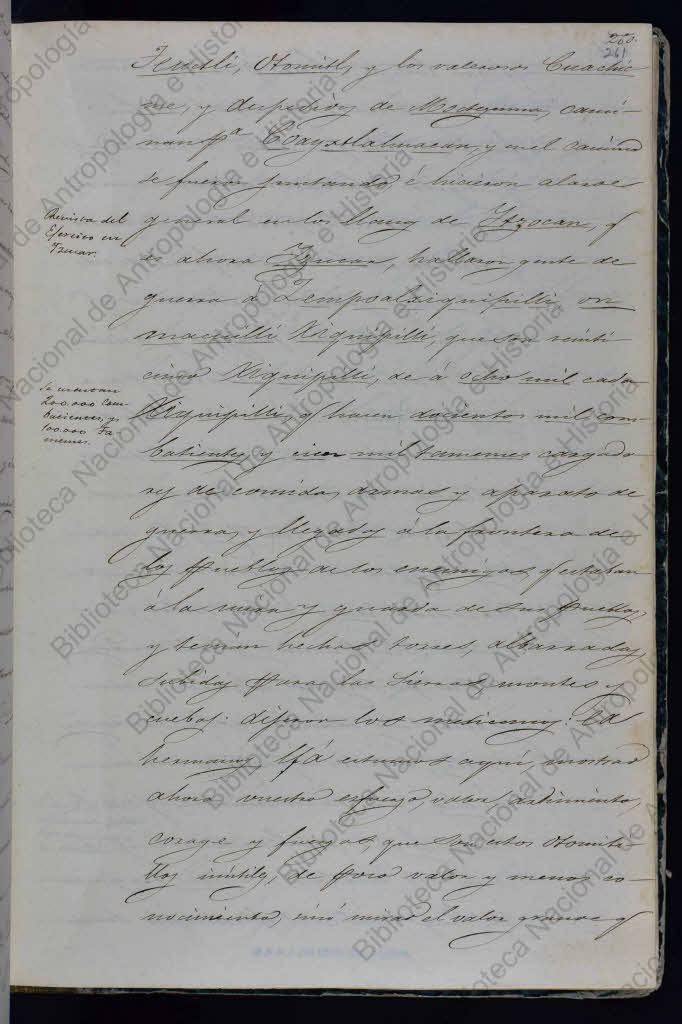 260.
261
Tequtli, Otomitl, y los valerosos Cuachic
me, y despedidos de Moctezuma, cami-
nan pª Coayxtlahuacan, y en el camino
se fueron juntando, é hicieron alarde
general en los llanos de Ytzocan, q
es ahora Yzucar, hallaron gente de
guerra á Zempoalxiquipilli, on
macuilli Xiquipilli, que son veinti
cinco Xiquipilli, de á ocho mil cada
Xiquipilli, q hacen docientos mil com-
batientes, y cien mil tamemes cargado
res de comida, armas y aparato de
guerra, y llegados á la frontera de
los Pueblos de los enemigos, q estaban
á la mira y guarda de sus Pueblos,
y tenían hechas torres, albarradas,
subidas para las Sierras, montes y
cuebas: dijeron los mexicanos: Ea
hermanos, Yá estamos aquí, mostrad
ahora vuestro esfuerzo, valor, ardimiento,
corage y fuerzas, que son estos Otomite-
llos inutiles, de poco valor y menos co-
nocimiento, sinó mirad el valor grande q
Revista del
Ejercito en
Yzucar.
Se cuentan
200.000 Com-
batientes, y
100.000 Ta
memes.
Biblioteca Nacional de Antropología e Historia